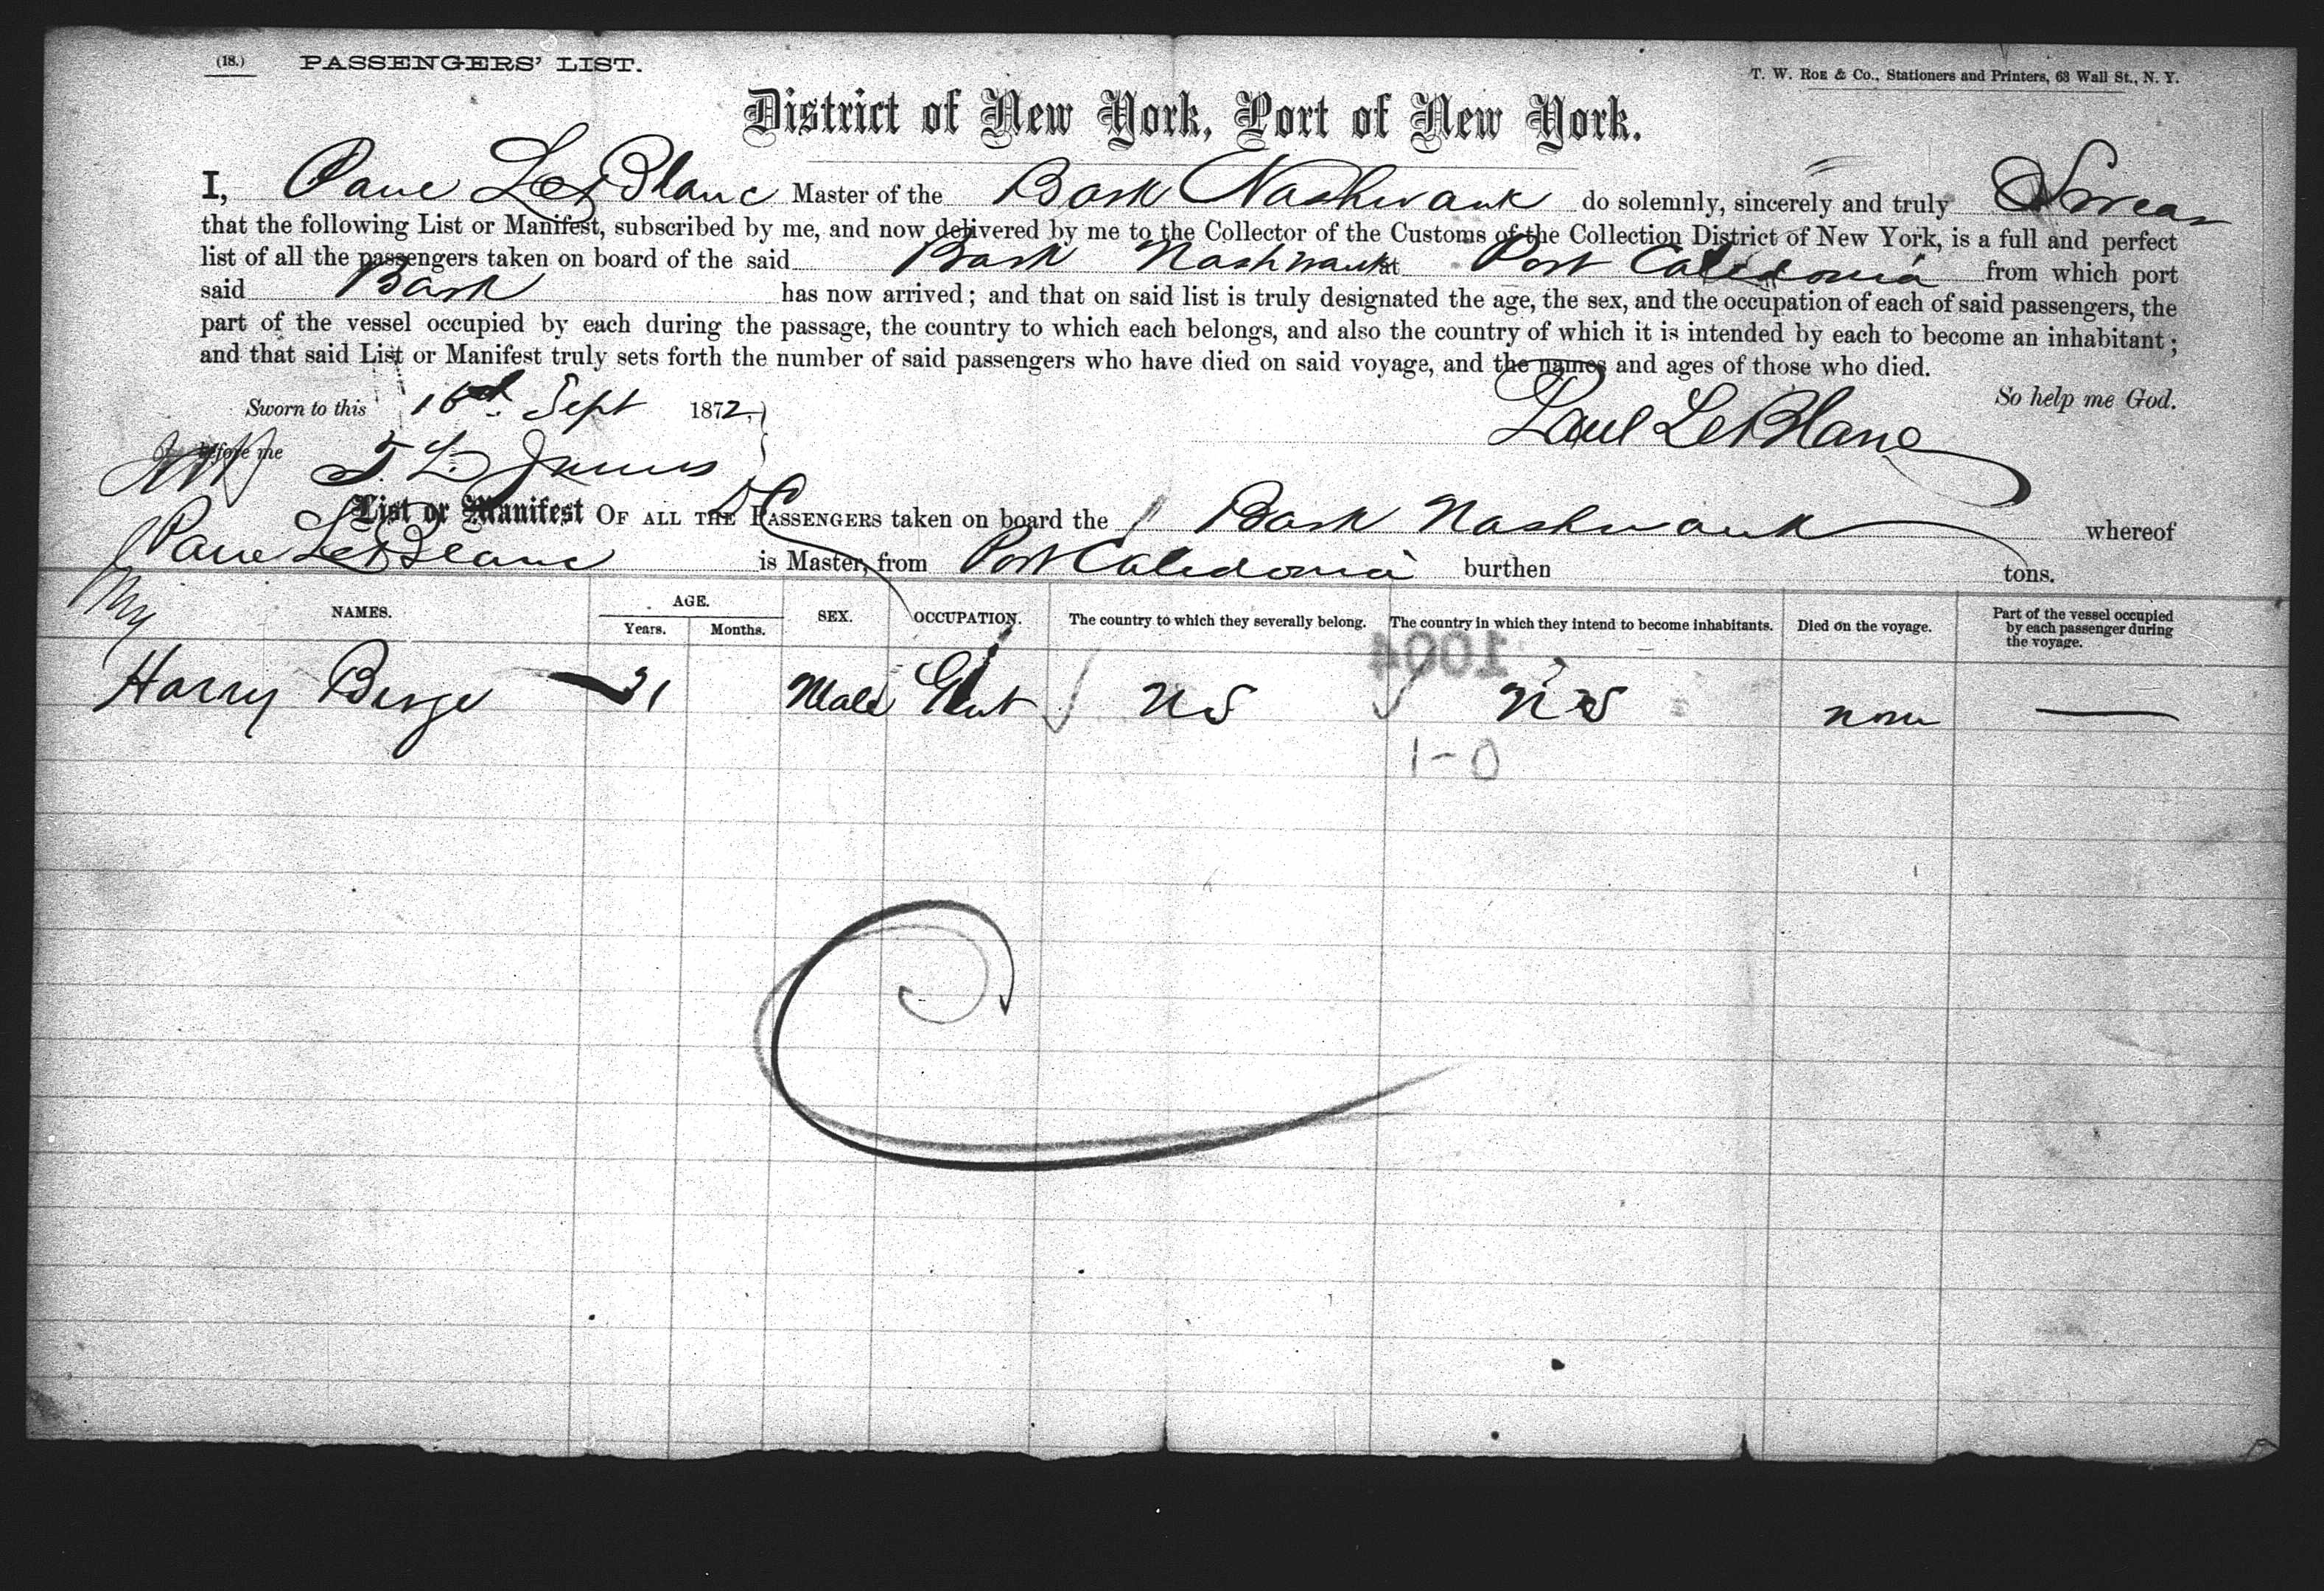 (18.) PASSENGERS' LIST.
T. W. Roe & Co., Stationers and Printers, 63 Wall St., N. Y.
District of New York, Port of New York.
I, Paul LeBlanc Master of the Bark Nashwauk do solemnly, sincerely and truly Swear
that the following List or Manifest, subscribed by me, and now delivered by me to the Collector of the Customs of the Collection District of New York, is a full and perfect
list of all the passengers taken on board of the said Bark Nashwauk at Port Caledonia from which port
said Bark has now arrived; and that on said list is truly designated the age, the sex, and the occupation of each of said passengers, the
part of the vessel occupied by each during the passage, the country to which each belongs, and also the country of which it is intended by each to become an inhabitant;
and that said List or Manifest truly sets forth the number of said passengers who have died on said voyage, and the names and ages of those who died.
So help me God.
Sworn to this 16th Sept 1872.
Paul LeBlanc
before me
List or Manifest OF ALL THE PASSENGERS taken on board the Bark Nashwauk whereof
Paul LeBlanc is Master, from Port Caledonia burthen tons.
NAMES. AGE. Years. Months. SEX. OCCUPATION. The country to which they severally belong. The country in which they intend to become inhabitants. Died on the voyage. Part of the vessel occupied by each passenger during the voyage.
1004
Harry 31 Male Gent NS NS none
1-0